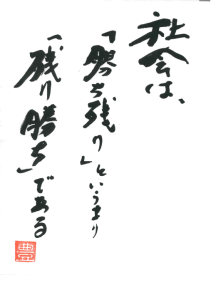 社会は、
「勝ち残り」というより
「残り勝ち」である
豊